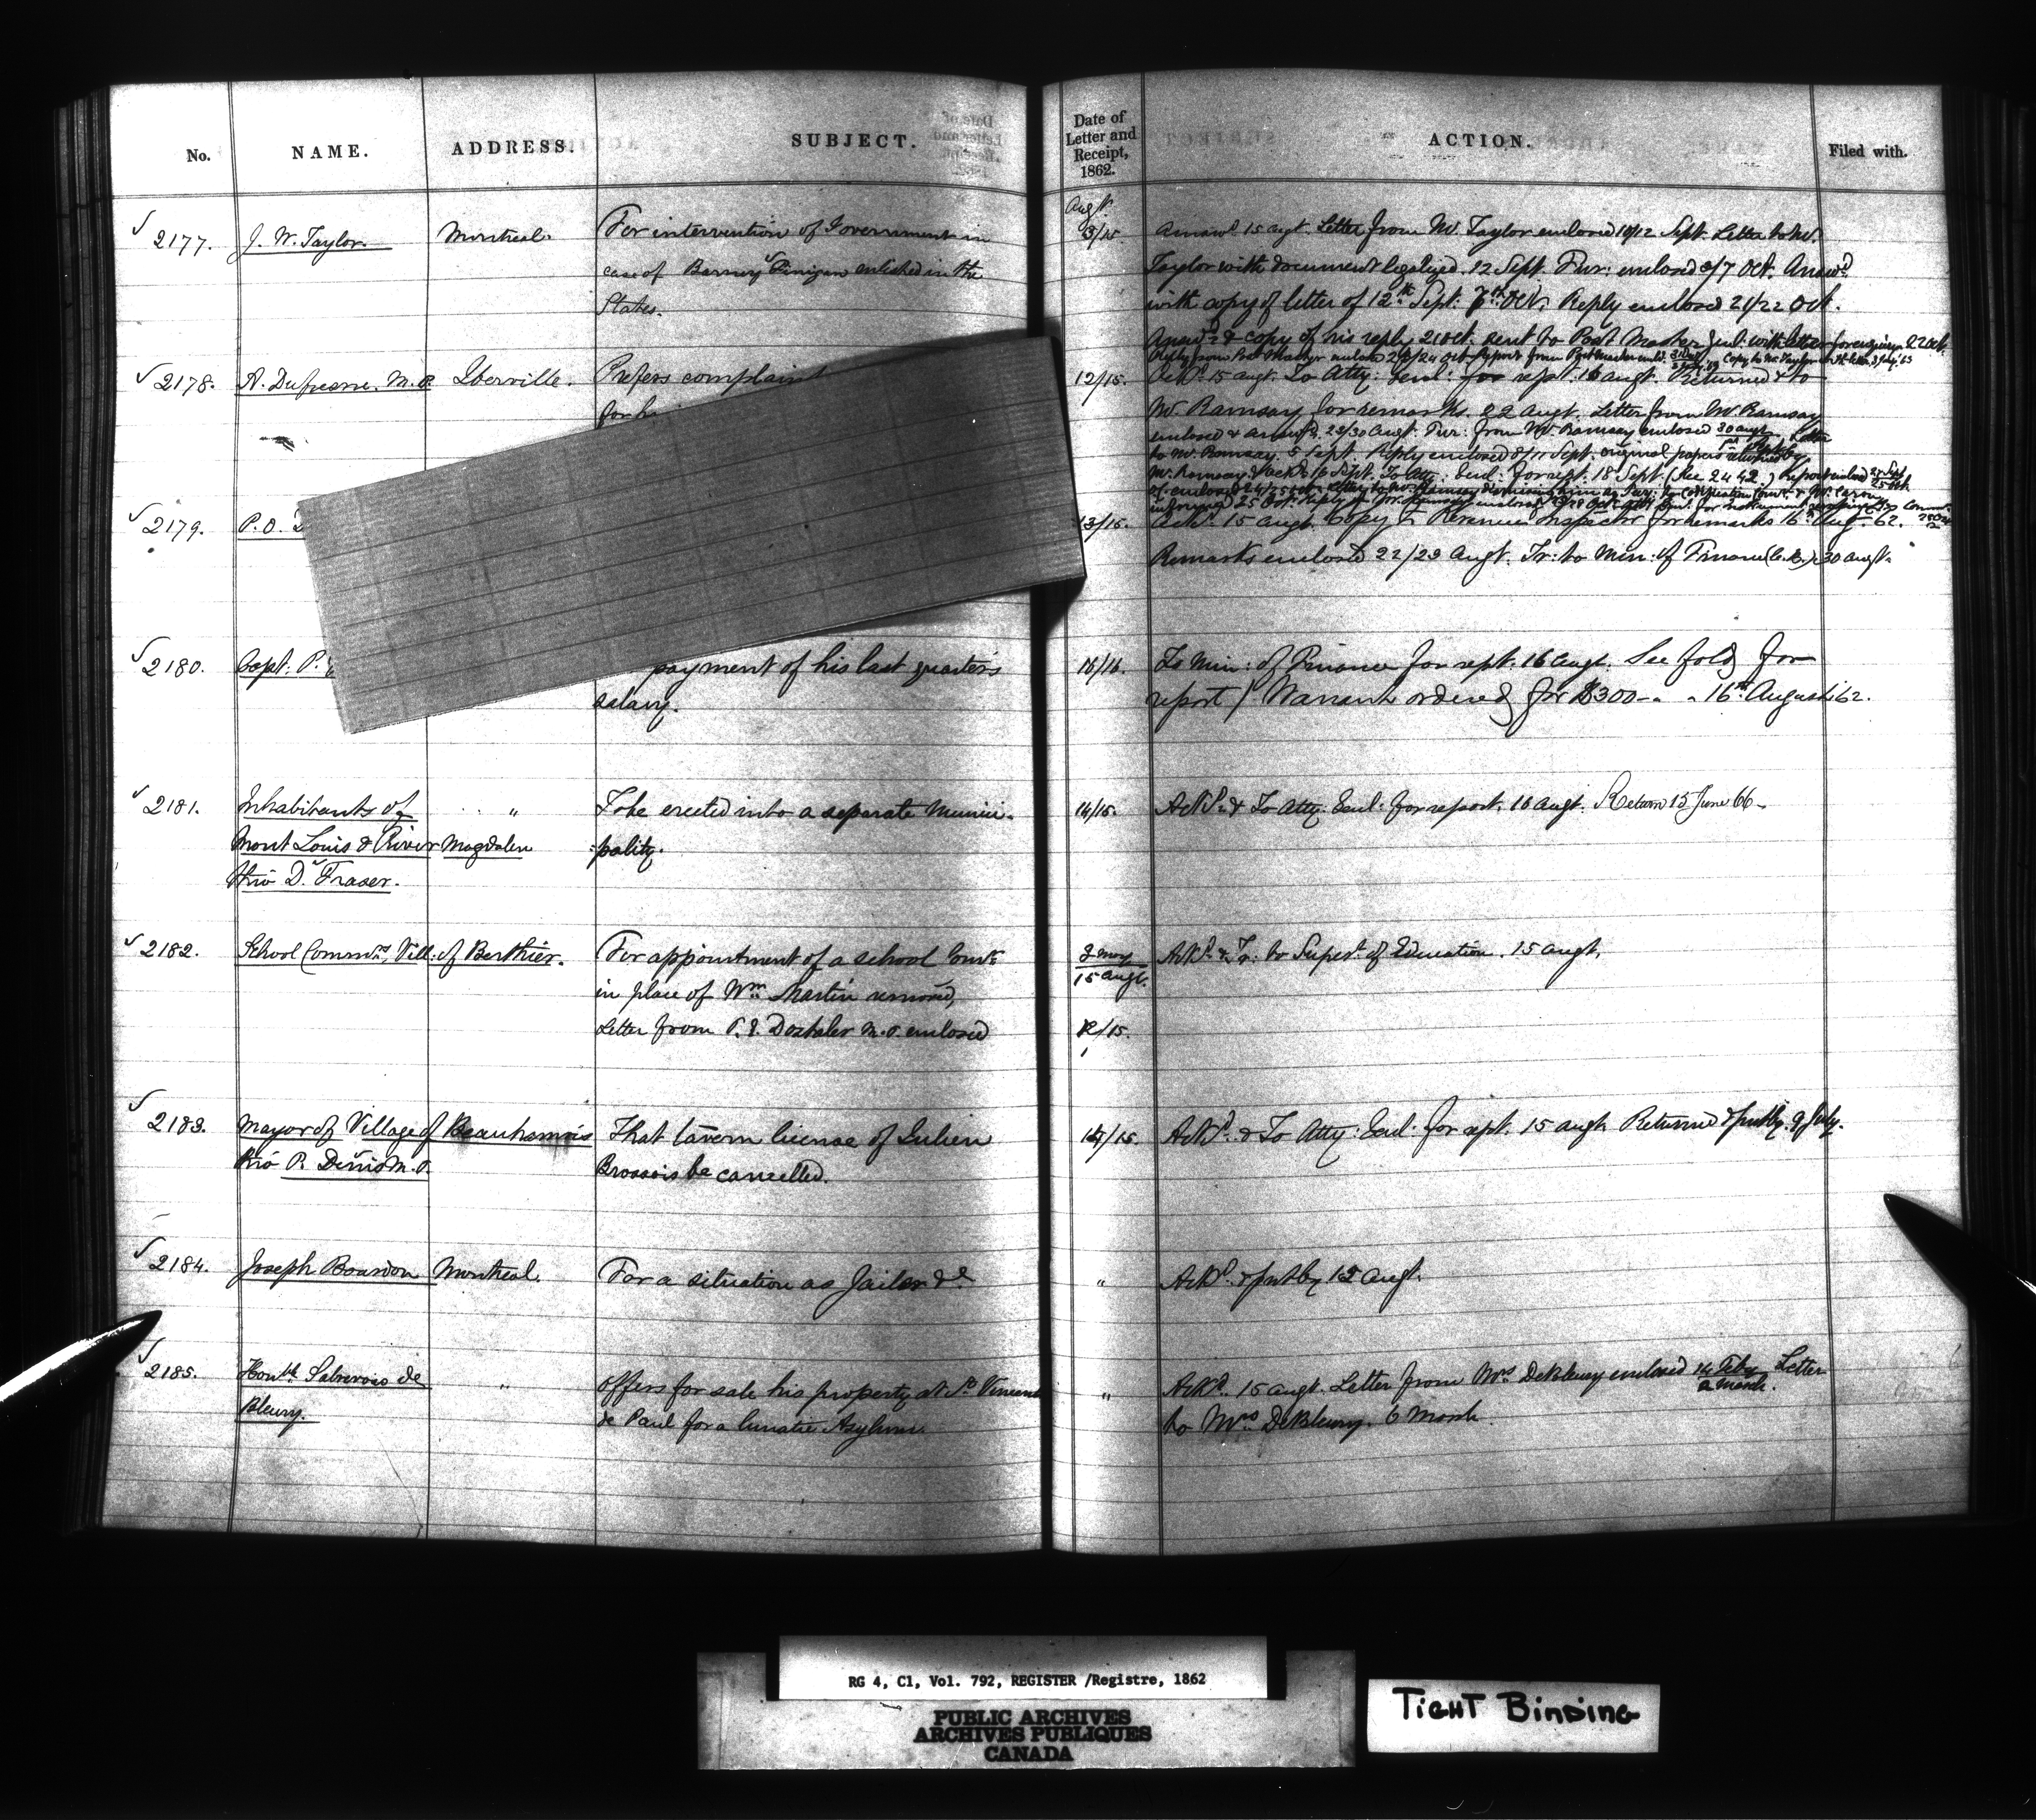 No.
NAME.
ADDRESS.
SUBJECT.
Date of
Letter and
Receipt,
1862.
ACTION.
Filed with.
Augt.
2177. J. W. Taylor Montreal. For intervention of Government in
case of Barney Finigan enlisted in the
States.
3/15 Answd. 15 augt. Letter from Mr. Taylor enclosed 10/12 Sept. Letter to Mr.
Taylor with document legalized. 12 Sept. Fur: enclosed 3/7 Oct. Answd.
with copy of letter of 12th Sept: 7th Oct. Reply enclosed 21/22 Oct.
Answd. & copy of his reply 21 Oct. sent to Post Master Genl. with letter
2178. A. Dufresne. M.P. Iberville. Prefers complaint
for
12/15. 15 augt. To Atty: Genl: for rept. 16 augt. Returned & to
Mr. Ramsay for remarks. 22 augt. Letter from Mr. Ramsay
enclosed & 23/30 augt. Fur: from Mr. Ramsay enclosed 30 augt
to Mr. Ramsay. 5 Sept. Reply enclosed 8/11 Sept. original papers
Mr. Ramsay 16 Sept. To Atty: Genl: for rept. 18 Sept. (See 2442.)
2179. P. O.
13/15. Ackd. 15 augt. Copy to Revenue Inspector for remarks 16th Aug. 62.
Remarks enclosed 22/23 augt. Tr: to Min: of Finance 30 augt.
2180. Capt: P.
payment of his last quarter's
salary.
15/16. To Min: of Finance for rept. 16 augt. See fold for
report / Warrant ordered for $300 - 16th August 62.
2181. Inhabitants of " To be erected into a separate Munici-
Mont Louis & River Magdalen pality.
thro' D. Fraser.
14/15. Ackd. & To Atty: Genl: for report. 16 augt. Return 15 June 66
2182. School Commrs. Vill: of Berthier. For appointment of a school Comr.
in place of Wm. Martin removed,
Letter from P. E. Dostaler M.P. enclosed
3 May
15 augt.
12/15.
Ackd. & Tr: to Supert. of Education. 15 augt.
2183. Mayor of Village of Beauharnois That tavern license of Julien
thro' P. Denis M.P. Brossois be cancelled.
14/15. Ackd. & To Atty: Genl: for rept. 15 augt. Returned & put by. 9 July.
2184. Joseph Bourdon Montreal. For a situation as Jailor &c
" Ackd. & put by 15 augt.
2185. Honble. Sabrevois de " Offers for sale his property at St. Vincent
Bleury. de Paul for a lunatic Asylum.
" Ackd. 15 augt. Letter from Mrs. DeBleury enclosed 14 Feby Letter
2 March.
to Mrs. DeBleury. 6 March.
RG 4, C1, Vol. 792, REGISTER /Registre, 1862
PUBLIC ARCHIVES
ARCHIVES PUBLIQUES
CANADA
TIGHT BINDING